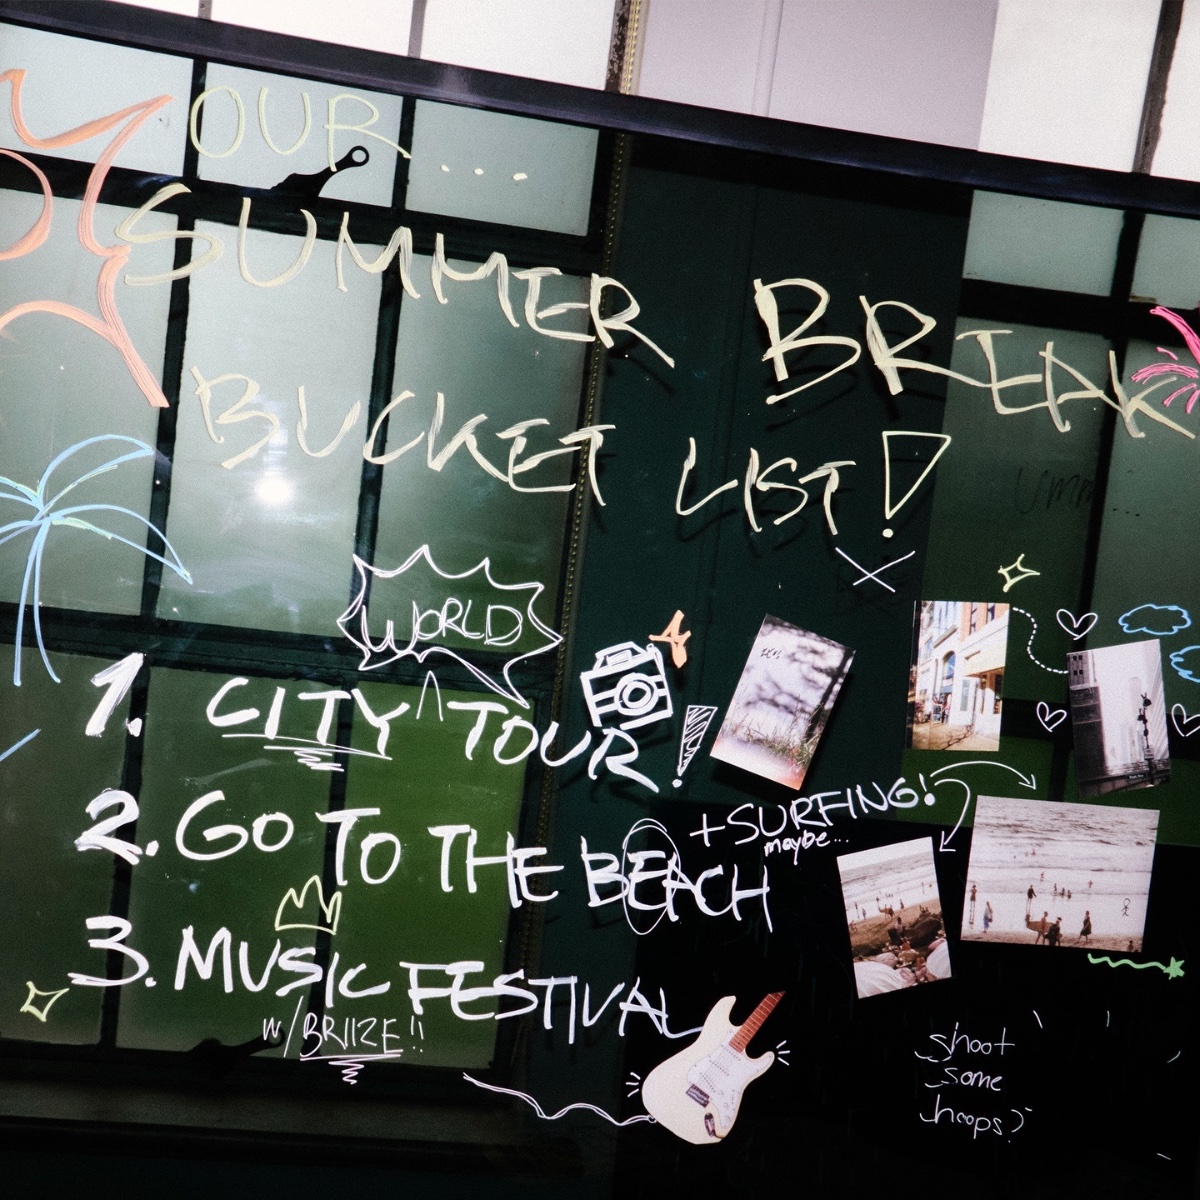 OUR...
SUMMER BREAK
BUCKET LIST!
WORLD
1. CITY ^ TOUR!
2. GO TO THE BEACH
+SURFING!
maybe...
3. MUSIC FESTIVAL
w/BRIIZE!!
shoot
some
hoops?